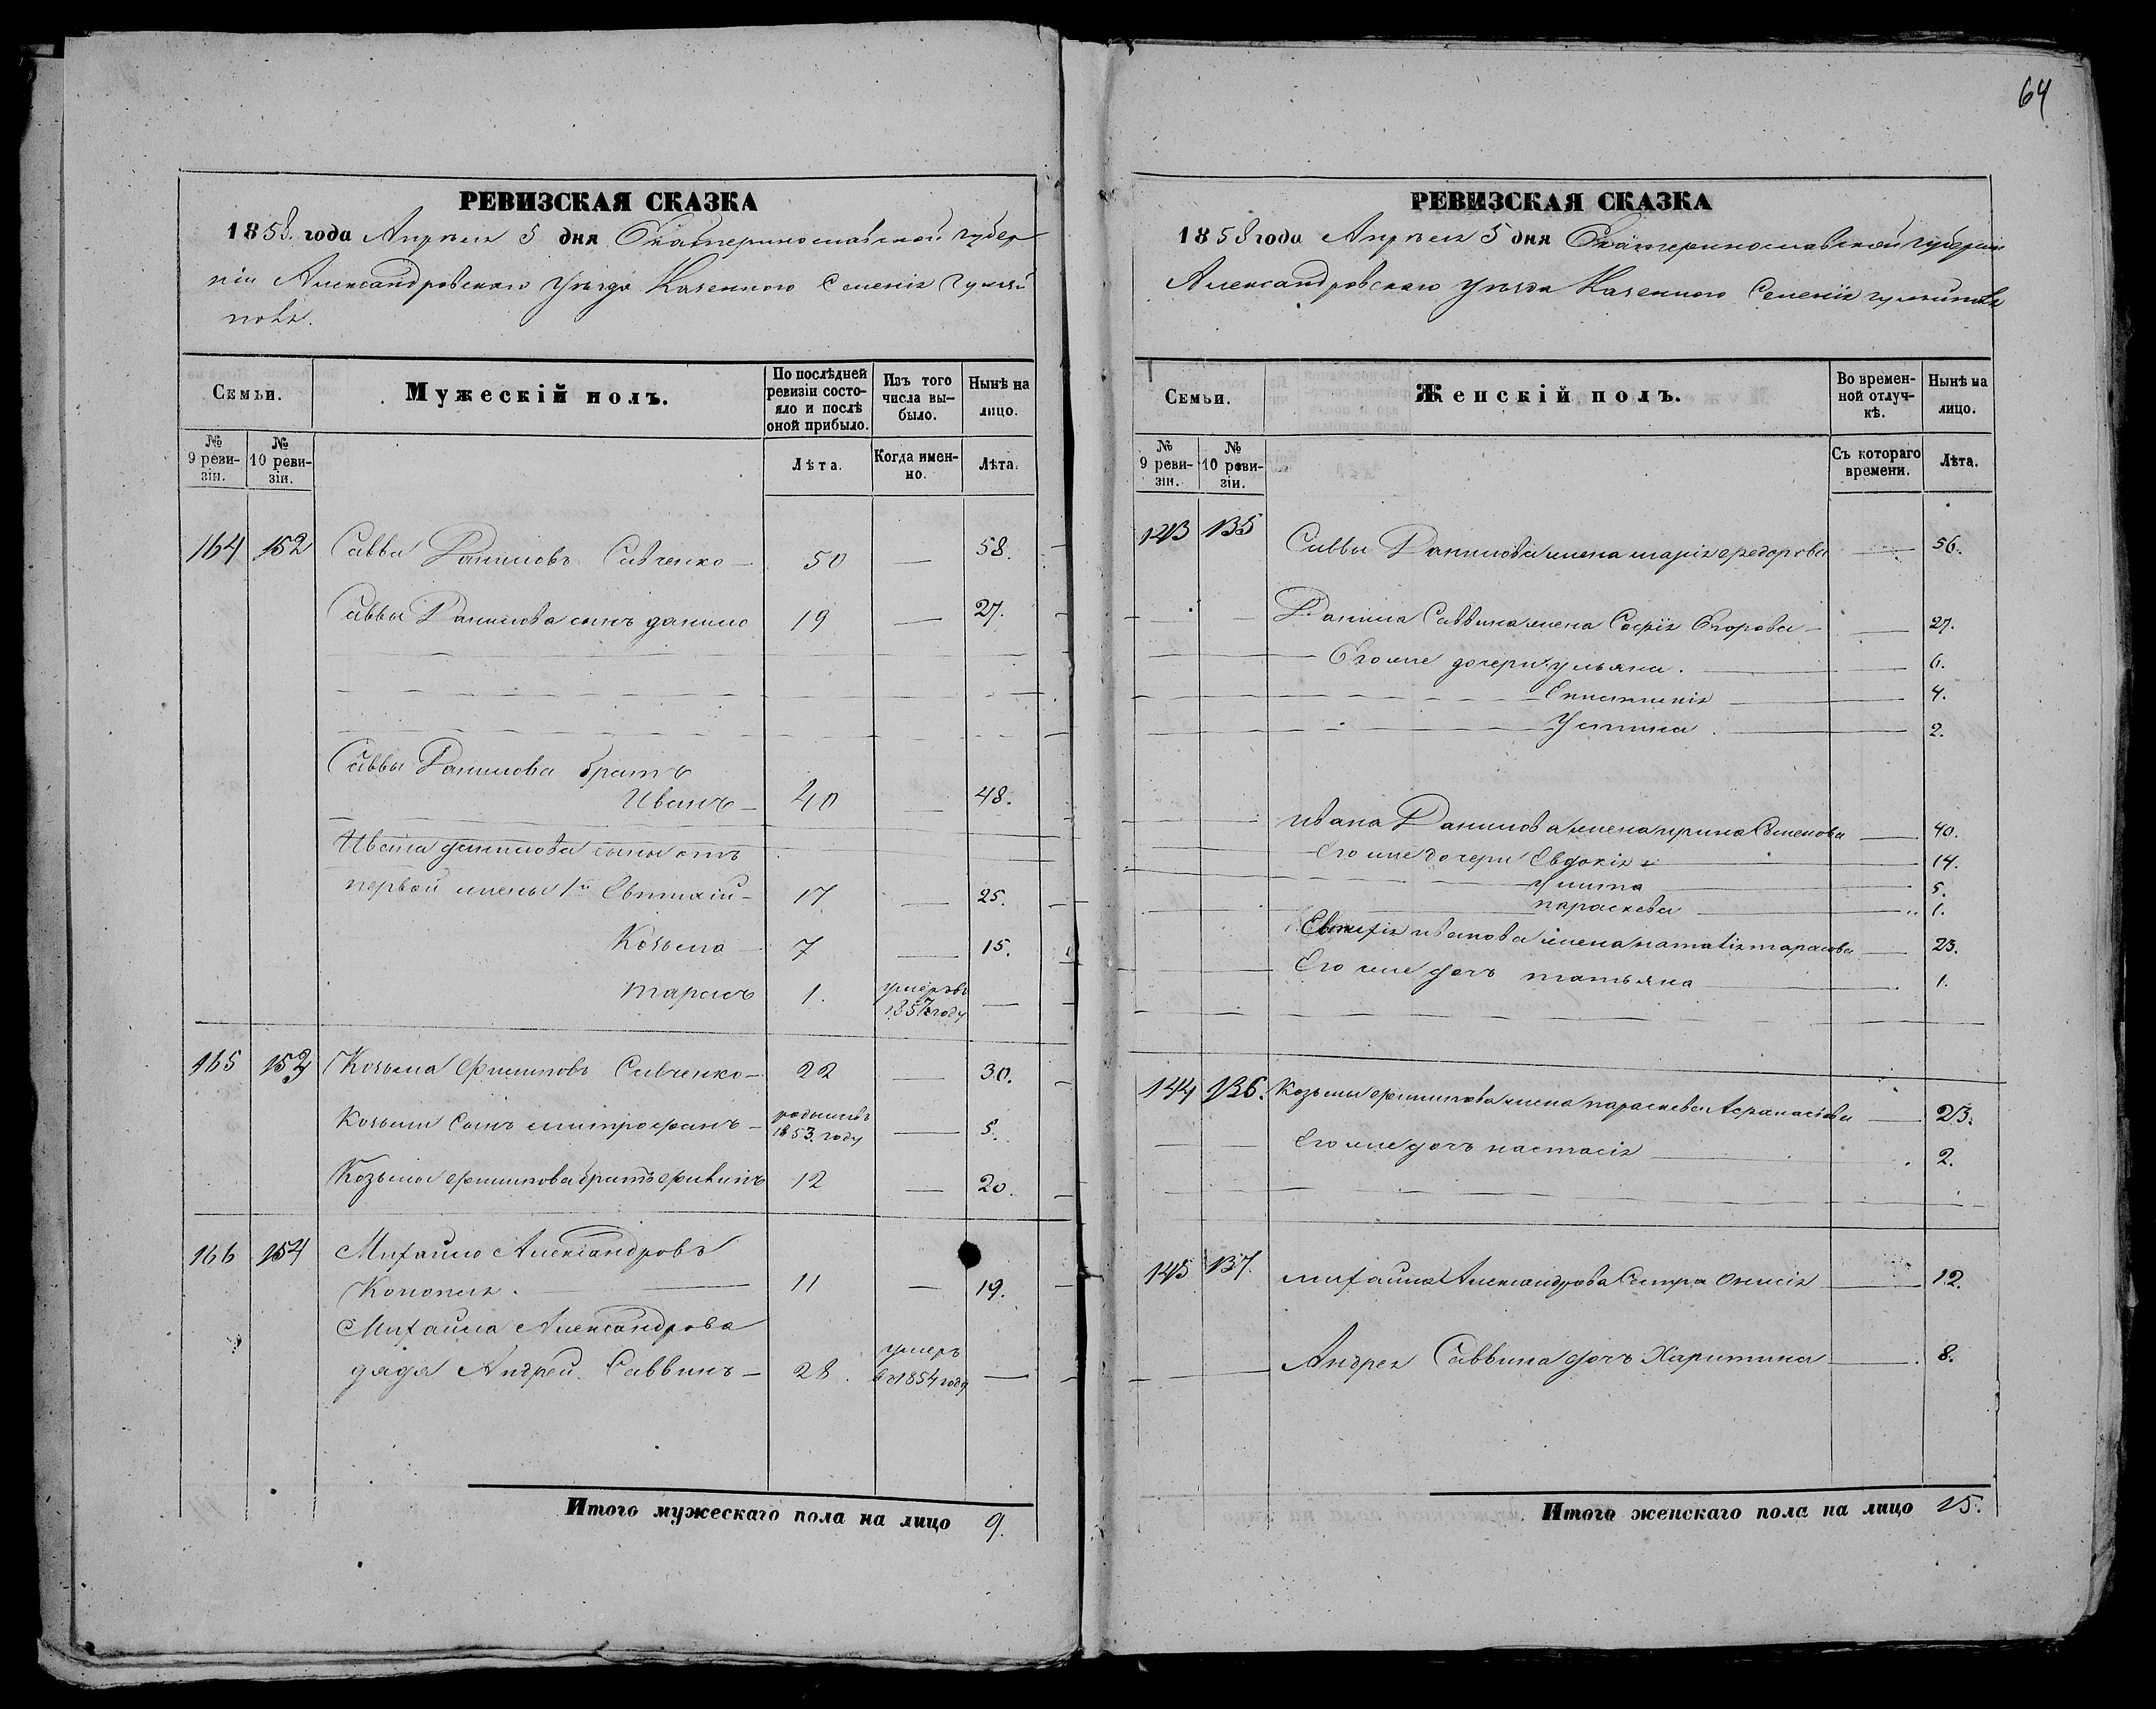 РЕВИЗСКАЯ СКАЗКА
1858. года Апреля 5 дня Екатеринославской губер
ніи Александровскаго Уезда Казеннаго Селенія Гуляй
поля.
Семьи.
Мужескій полъ.
По послѣдней ревизіи состояло и послѣ оной прибыло.
Изъ того числа выбыло.
Нынѣ на лицо.
№ 9 ревизіи.
№ 10 ревизіи.
Лѣта.
Когда именно.
Лѣта.
164 152 Савва Даниловъ Савченко — 50 — 58.
Саввы Данилова сынъ данило 19 — 27.
Саввы Данилова братъ
Иванъ — 40 — 48.
Ивана данилова сыны отъ
первой жены 1й Евтихій — 17 — 25.
Козьма — 7 — 15.
тарасъ 1. умеръ въ 1857 году —
165 153 Козьма филиповъ Савченко — 22 — 30.
Козьмы Сынъ митрофанъ — родился въ 1853. году — 5.
Козьмы филипова братъ филипъ 12 — 20.
166 154 Михайло Александровъ
Конопля. — 11 — 19.
Михайла Александрова
дядя Андрей Саввинъ — 28. умеръ въ 1854 году —
Итого мужескаго пола на лицо 9.
64
РЕВИЗСКАЯ СКАЗКА
1858 года Апреля 5 дня Екатеринославской губерніи
Александровскаго Уезда Казеннаго Селенія гуляйполя
Семьи.
Женскій полъ.
Во временной отлучкѣ.
Нынѣ на лицо.
№ 9 ревизіи.
№ 10 ревизіи.
Съ котораго времени.
Лѣта.
143 135 Саввы Данилова жена марія федорова — 56.
Данила Саввина жена Софія Егорова — 27.
Его же дочери ульяна. — 6.
Епистимія — 4.
Устина. — 2.
ивана Данилова жена ирина Семенова — 40.
Его же дочери Евдокія — 14.
Улита — 5.
параскева — 1.
Евтихія иванова жена наталія тарасова — 23.
Его же дочь татьяна — 1.
144 136. Козьмы филипова жена параскева Афанасіева — 23.
Его же дочь настасія — 2.
145 137. михайла Александрова Сестра Онисія — 12.
Андрея Саввина дочь Харитина — 8.
Итого женскаго пола на лицо 15.